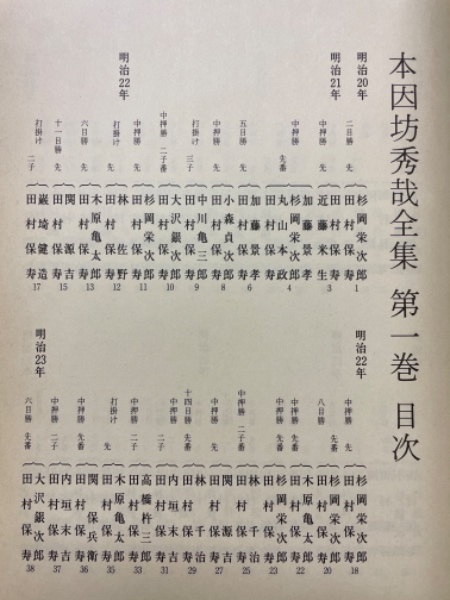 本因坊秀哉全集 第一巻 目次
明治20年
二目勝 先
杉岡栄次郎
田村保寿 1
明治21年
中押勝 先
田村保寿
近藤米生 3
中押勝
加藤景孝
杉岡栄次郎 4
先番
丸山本政
五日勝 先
加藤景孝
田村保寿
中押勝 先
小森貞次郎
田村保寿 8
打掛け 三子
中川亀三郎
田村保寿 9
中押勝 二子番
大沢銀次郎
田村保寿 10
明治22年
中押勝 先
杉岡栄次郎
田村保寿 11
打掛け 先
林佐野
田村保寿 12
六目勝 先
木原亀太郎
田村保寿 13
十一目勝 先
関源吉
田村保寿 15
打掛け 二子
巌埼健造
田村保寿 17
明治22年
中押勝 先
杉岡栄次郎
田村保寿 18
八目勝 先番
杉岡栄次郎
田村保寿 20
中押勝 先番
木原亀太郎
田村保寿 22
中押勝 先番
杉岡栄次郎
田村保寿 23
中押勝 二子番
林千治
田村保寿 25
中押勝 先
関源吉
田村保寿 27
十四目勝 先番
林千治
田村保寿 29
中押勝 二子
内垣末吉
田村保寿 31
中押勝 二子
高橋杵三郎
田村保寿 33
打掛け 先
木原亀太郎
田村保寿 35
明治23年
中押勝 先番
関保兵衛
田村保寿 36
中押勝 二子
内垣末吉
田村保寿 37
六目勝 先番
大沢銀次郎
田村保寿 38